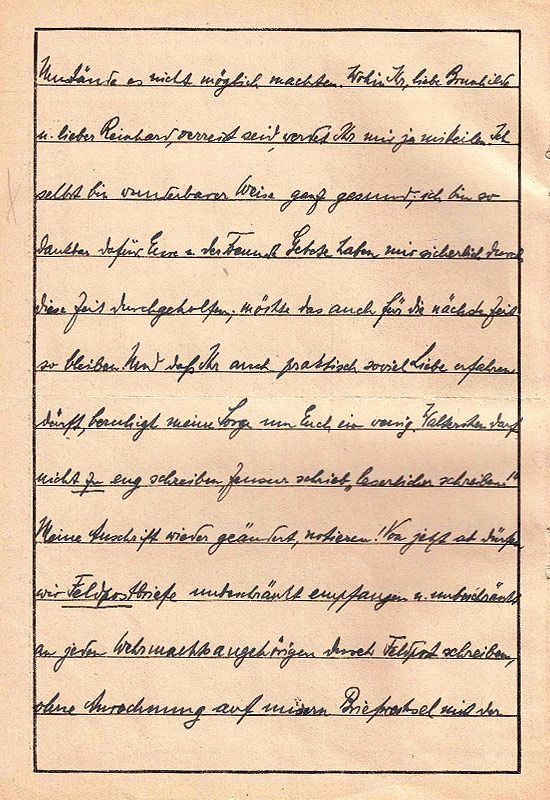 Umstände es nicht möglich machten. Wohin Ihr, liebe Brunhilde
u. lieber Reinhard, verreist seid, werdet Ihr mir ja mitteilen. Ich
selbst bin wunderbarer Weise ganz gesund; ich bin so
dankbar dafür. Eure u. der Freunde Gebete haben mir sicherlich durch
diese Zeit durchgeholfen; möchte das auch für die nächste Zeit
so bleiben. Und daß Ihr auch praktisch soviel Liebe erfahren
dürft, beruhigt meine Sorge um Euch ein wenig. darf
nicht zu eng schreiben Zensur schrieb „leserlicher schreiben!"
Meine Anschrift wieder geändert, notieren! Von jetzt ab dürfen
wir Feldpostbriefe unbeschränkt empfangen u. unbeschränkt
an jeden Wehrmachtsangehörigen durch Feldpost schreiben,
ohne Anrechnung auf unsern Briefwechsel mit der